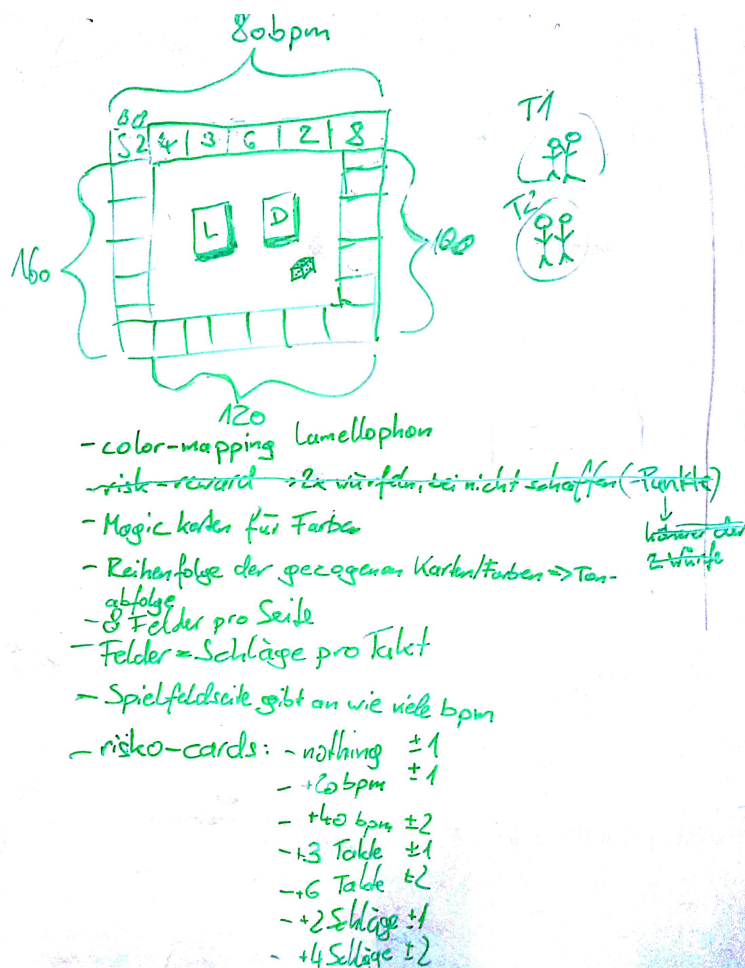 80bpm
T1
4 | 3 | 6 | 2 | 8
L D
T2
160
120
- color-mapping Lamellophon
- risk-reward → 2x würfeln, bei nicht schaffen (-Punkte)
- Magic karten für Farben
- Reihenfolge der gezogenen Karten/Farben => Ton-
abfolge
- 8 Felder pro Seite
- Felder = Schläge pro Takt
- Spielfeldseite gibt an wie viele bpm
- risko-cards: - nothing ±1
- +20bpm ±1
- +40 bpm ±2
- +3 Takte ±1
- +6 Takte ±2
- +2 Schläge ±1
- +4 Schläge ±2